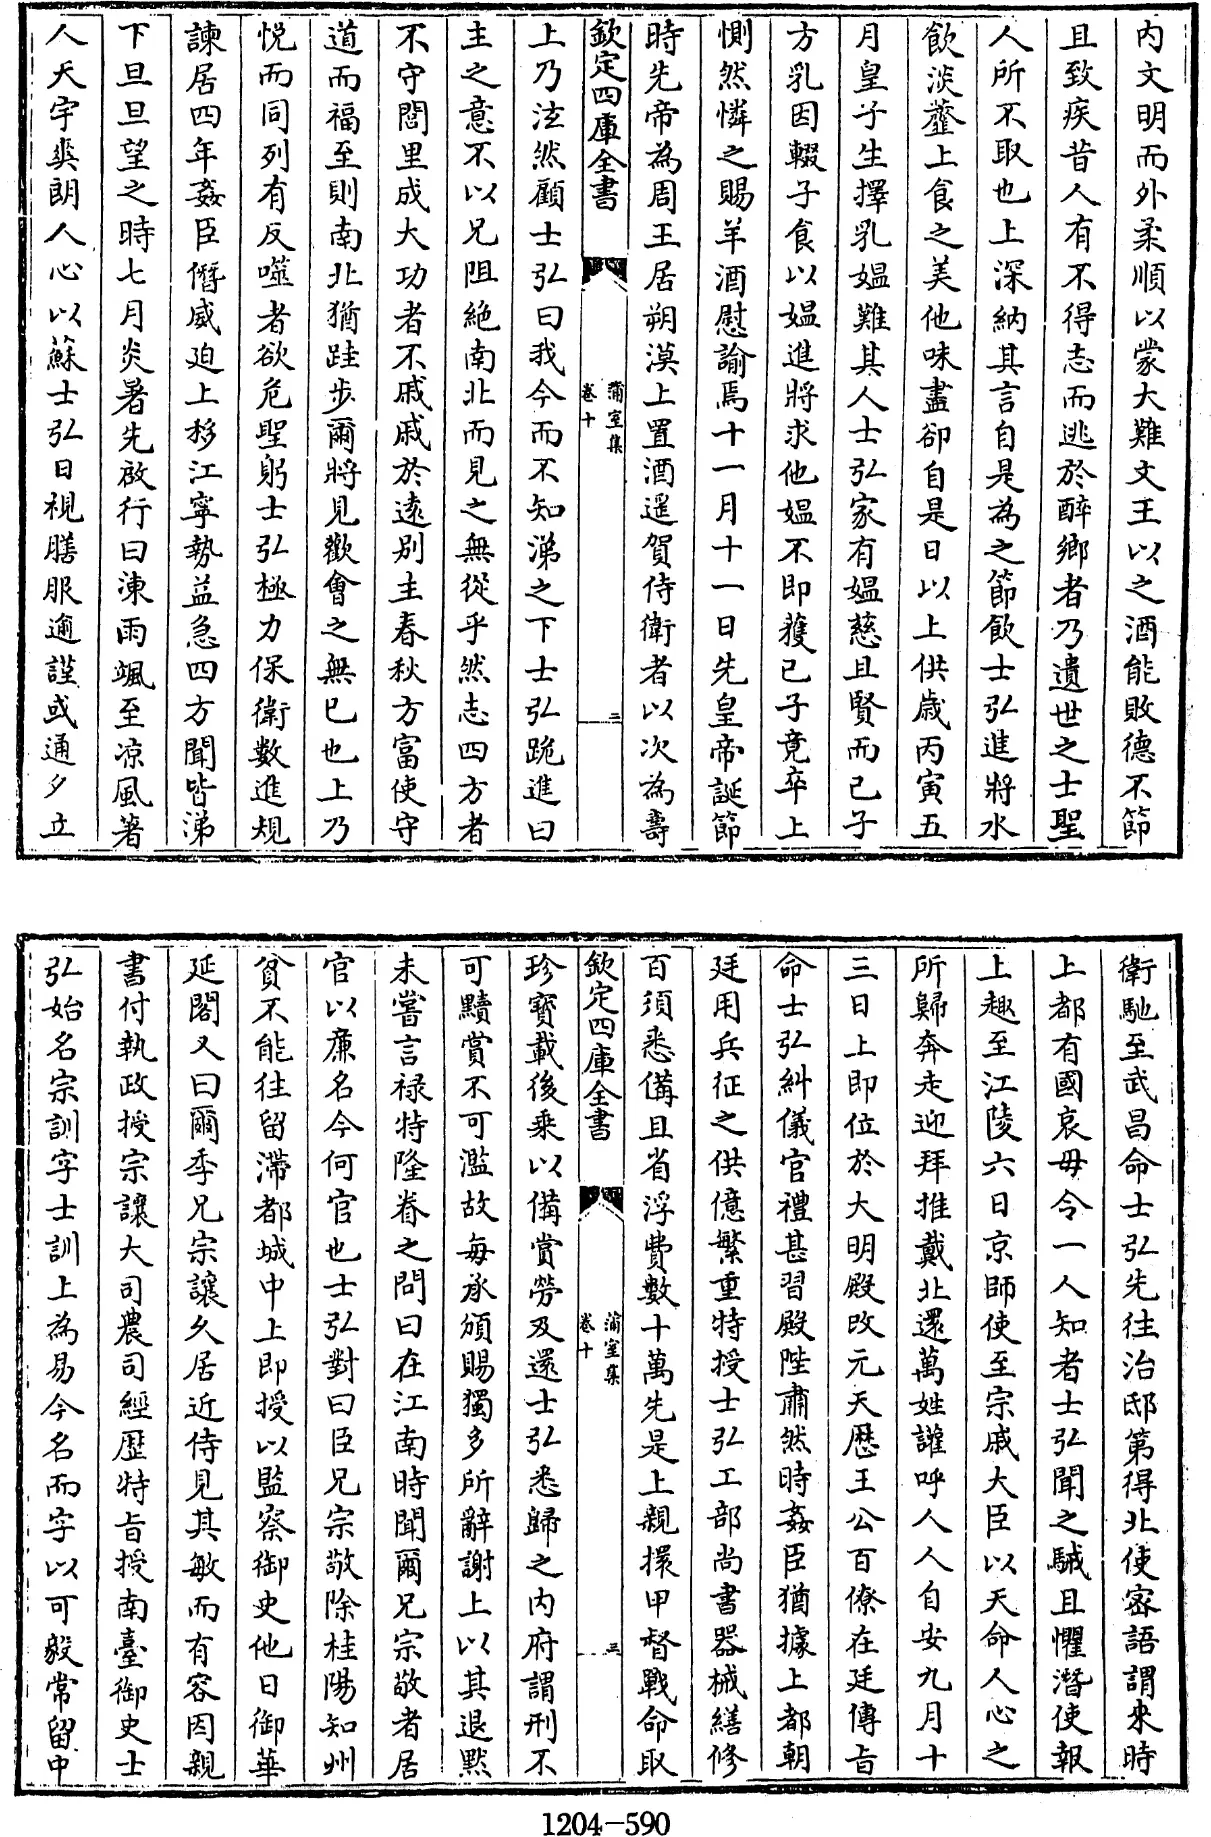 内文明而外柔順以蒙大難文王以之酒能敗德不節
且致疾昔人有不得志而逃於醉鄉者乃遺世之士聖
人所不取也上深納其言自是為之節飲士弘進將水
飲淡虀上食之美他味盡卻自是日以上供歲丙寅五
月皇子生擇乳媪難其人士弘家有媪慈且賢而己子
方乳因輟子食以媪進將求他媪不即獲已子竟卒上
惻然憐之賜羊酒慰諭焉十一月十一日先皇帝誕節
時先帝為周王居朔漠上置酒遥賀侍衛者以次為壽
欽定四庫全書
蒲室集
卷十
三
上乃泫然顧士弘曰我今而不知涕之下士弘跪進曰
主之意不以兄阻絶南北而見之無從乎然志四方者
不守閭里成大功者不戚戚於遠别主春秋方富使守
道而福至則南北猶跬步爾將見歡會之無已也上乃
悦而同列有反噬者欲危聖躬士弘極力保衛數進規
諫居四年姦臣僭威迫上移江寧勢益急四方聞皆涕
下旦旦望之時七月炎暑先啟行曰涷雨颯至凉風著
人天宇爽朗人心以蘇士弘日視膳服逾謹或通夕立
衛馳至武昌命士弘先往治邸第得北使密語謂來時
上都有國哀毋令一人知者士弘聞之駴且懼潛使報
上趣至江陵六日京師使至宗戚大臣以天命人心之
所歸奔走迎拜推戴北還萬姓讙呼人人自安九月十
三日上即位於大明殿改元天厯王公百僚在廷傳旨
命士弘糾儀官禮甚習殿陛肅然時姦臣猶據上都朝
廷用兵征之供億繁重特授士弘工部尚書器械繕修
百須悉備且省浮費數十萬先是上親擐甲督戰命取
欽定四庫全書
蒲室集
卷十
三
珍寶載後乘以備賞勞及還士弘悉歸之内府謂刑不
可黷賞不可濫故每承頒賜獨多所辭謝上以其退黙
未嘗言禄特隆眷之問曰在江南時聞爾兄宗敬者居
官以亷名今何官也士弘對曰臣兄宗敬除桂陽知州
貧不能往留滯都城中上即授以監察御史他日御華
延閣又曰爾季兄宗讓久居近侍見其敏而有容因親
書付執政授宗讓大司農司經歴特旨授南臺御史士
弘始名宗訓字士訓上為易今名而字以可毅常留中
1204-590